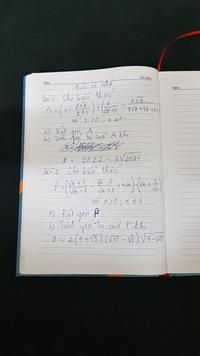 Bài về nhà
Bài 1. Cho biểu thức
A = (1 - 2√x / x+1) : (1 / √x+1 - 2√x /
với x > 0; x ≠ 1
a) Rút gọn A
b) Tính giá trị của A khi
x = 2022 - 2√2021
Bài 2. Cho biểu thức
P = (√a+1 / √a-1 - √a-1 / √a+1 + 4√a) · (√a + 1/√a)
với a > 0; a ≠ 1
a) Rút gọn P
b) Tính giá trị của P khi